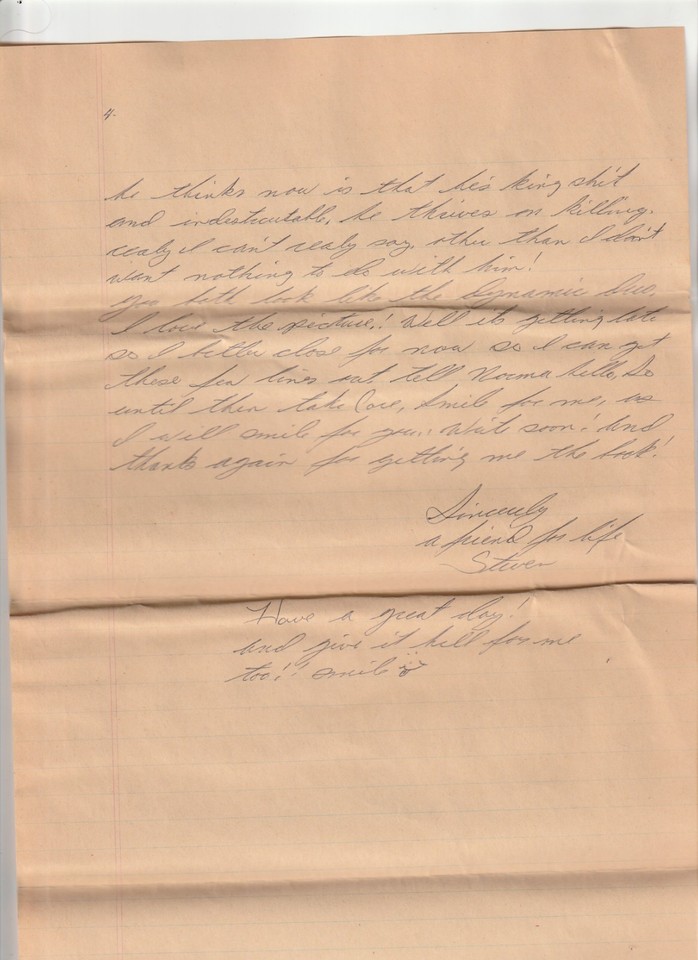 4.
he thinks now is that he's king shit
and indestrutable, he thrives on killing.
realy I can't realy say, other than I don't
want nothing to do with him!
You both look like the Dynamic Duo,
I love the picture,! Well its getting late
so I better close for now so I can get
these few lines out, tell Norma hello, So
until then take Care, Smile for me, as
I will smile for you,! Write soon! And
thanks again for getting me the book!
Sincerely
a friend for life
Steven
Have a great day!
and give it hell for me
too!! smile